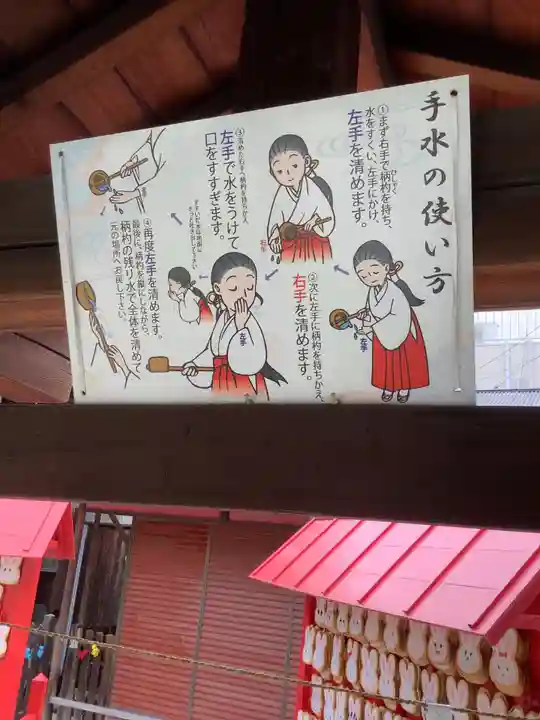 手水の使い方
①まず右手で柄杓を持ち、
ひしゃく
水をすくい、左手にかけ、
左手を清めます。
左手
②次に左手に柄杓を持ちかえ、
右手を清めます。
右手
③清めた右手へ柄杓を持ちかえ
左手で水をうけて
口をすすぎます。
左手
④再度左手を清めます。
最後に、柄杓を縦にしながら、
柄杓の残り水で全体を清めて
元の場所へお戻し下さい。